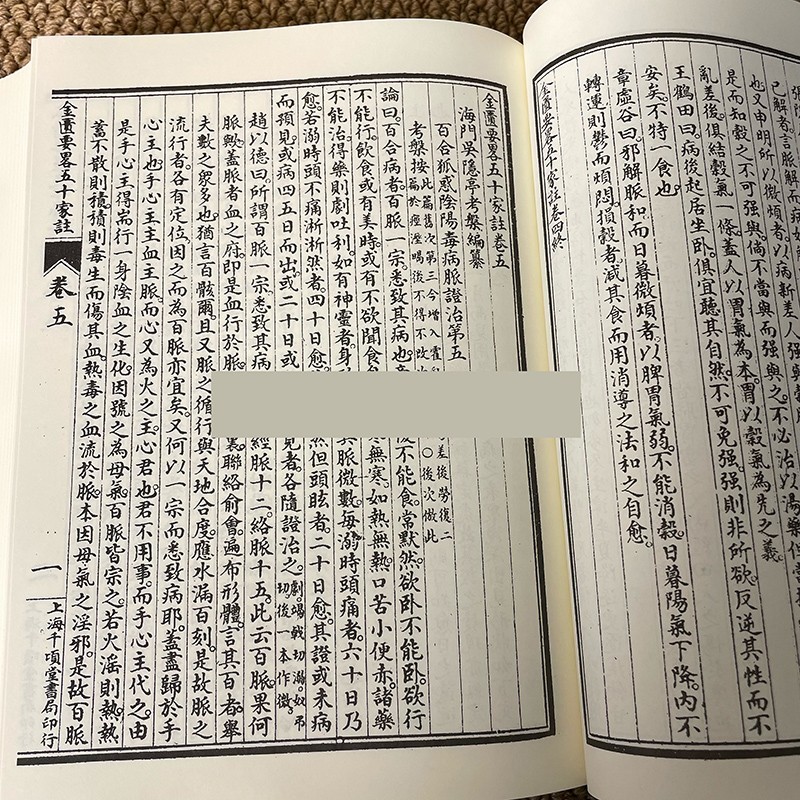 已解者。言脈解而
也。又申明所以微煩者。以病新差人
是而知穀之不可強與。倘不當與而強與之。不必治以湯藥。但當
亂差後。俱結穀氣一條。蓋人以胃氣為本。胃以穀氣為先之義。
王鶴田曰。病後起居坐臥。俱宜聽其自然。不可免強。強則非所欲。反逆其性而不
安矣。不特一食也。
章虛谷曰。邪解脈和。而日暮微煩者。以脾胃氣弱。不能消穀。日暮陽氣下降。內不
轉運則鬱而煩悶。損穀者。減其食而用消導之法。和之自愈。
金匱要畧五十家註卷四終
金匱要畧五十家註卷五
海門吳隱亭考槃編纂
百合狐惑陰陽毒病脈證治第五
考槃按此篇舊次第三今增入霍 差後勞復二
篇於痙溼暍後不得不改 〇後次倣此
論曰。百合病者。百脈一宗。悉致其病也。 不能食。常默然。欲臥不能臥。欲行
不能行。飲食或有美時。或有不欲聞食 寒無寒。如熱無熱。口苦小便赤。諸藥
不能治。得藥則劇吐利。如有神靈者。身 其脈微數。每溺時頭痛者。六十日乃
愈。若溺時頭不痛淅淅然者。四十日愈。 然。但頭眩者。二十日愈。其證或未病
而預見。或病四五日而出。或二十日或 見者。各隨證治之。劇。竭戟切。溺。奴吊切。後一本作微。
趙以德曰。所謂百脈一宗。悉致其病 經脈十二。絡脈十五。此云百脈果何
脈歟。蓋脈者血之府。即是血行於脈。 裏。聯絡俞會。遍布形體。言其百者。舉
夫數之衆多也。猶言百骸爾。且又脈之循行與天地合度。應水漏百刻。是故脈之
流行者。各有定位。因之而為百脈亦宜矣。又何以一宗而悉致病耶。蓋盡歸於手
心主也。手心主主血主脈。而心又為火之主。心君也。君不用事。而手心主代之。由
是手心主得耑行一身陰血之生化。因號之為母氣。百脈皆宗之。若火淫則熱。熱
蓄不散則積。積則毒生而傷其血。熱毒之血流於脈。本因母氣之淫邪。是故百脈
金匱要畧五十家註 卷五 一 上海千頃堂書局印行